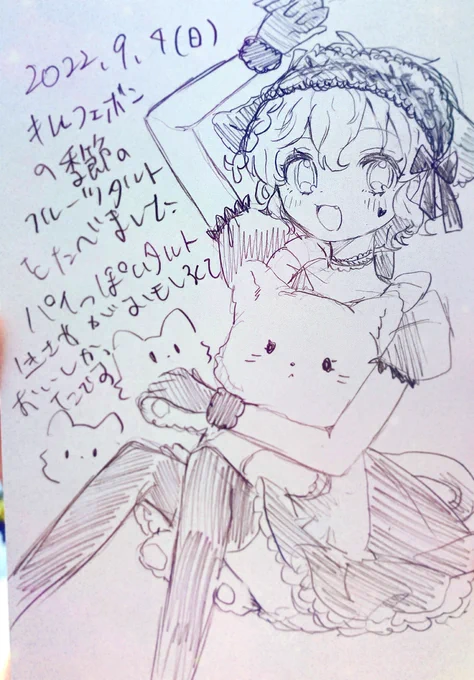 2022.9.4(日)
キルフェボン
の季節の
フルーツタルト
をたべました
パイっぽいタルト
生地がおもしろくて
おいしかっ
たです